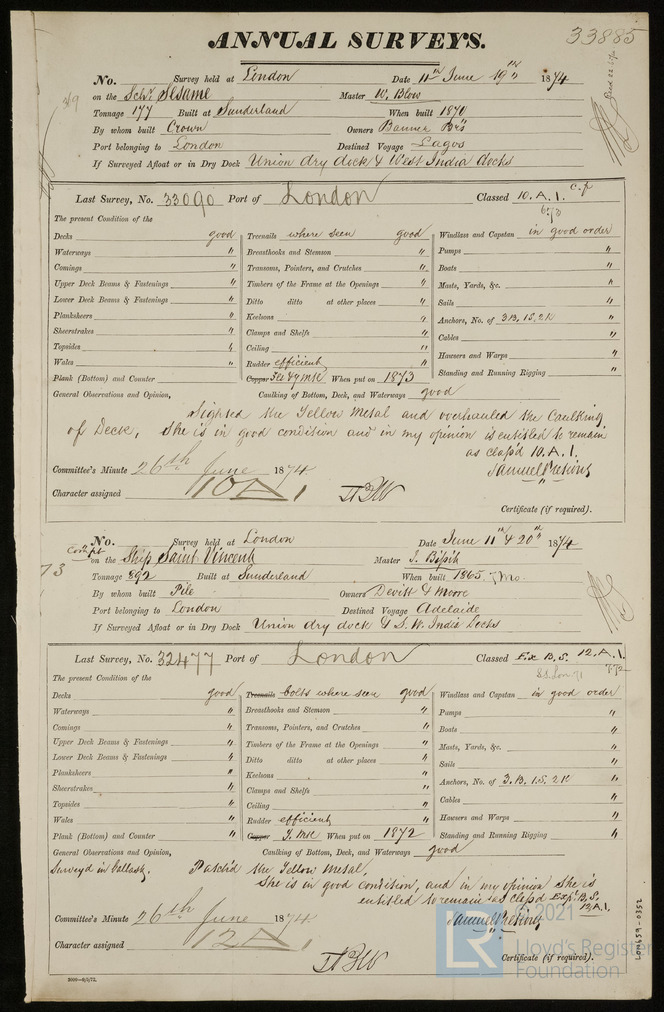 ANNUAL SURVEYS.
33885
No. Survey held at London Date 11th June 19th 1874
on the Schr. Sesame Master W. Blow
Tonnage 177 Built at Sunderland When built 1870
By whom built Crown Owners Banner Brs
Port belonging to London Destined Voyage Lagos
If Surveyed Afloat or in Dry Dock Union dry dock & West India docks
Last Survey, No. 33090 Port of London Classed 10. A. 1.
c.f
6.73
The present Condition of the
Decks good Treenails where seen good Windlass and Capstan in good order
Waterways " Breasthooks and Stemson " Pumps "
Comings " Transoms, Pointers, and Crutches " Boats "
Upper Deck Beams & Fastenings " Timbers of the Frame at the Openings " Masts, Yards, &c. "
Lower Deck Beams & Fastenings " Ditto ditto at other places " Sails "
Planksheers " Keelsons " Anchors, No. of 3B. 1S. 2K "
Sheerstrakes " Clamps and Shelfs " Cables "
Topsides " Ceiling " Hawsers and Warps "
Wales " Rudder efficient Standing and Running Rigging "
Plank (Bottom) and Counter " Copper Felt & YMtl When put on 1873
General Observations and Opinion, Caulking of Bottom, Deck, and Waterways good
Sighted the Yellow Metal and overhauled the Caulking
of Deck, She is in good condition and in my opinion is entitled to remain
as class'd 10. A. 1.
Samuel Pretious
Committee's Minute 26th June 1874
Character assigned 10A1
Certificate (if required).
No. Survey held at London Date June 11th & 20th 1874
on the Ship Saint Vincent Master J. Bissit
Tonnage 892 Built at Sunderland When built 1865. 7 Mo.
By whom built Pile Owners Devitt & Moore
Port belonging to London Destined Voyage Adelaide
If Surveyed Afloat or in Dry Dock Union dry dock & S. W. India Docks
Last Survey, No. 32477 Port of London Classed Ex B. S. 12. A. 1.
The present Condition of the
Decks good Treenails bolts where seen good Windlass and Capstan in good order
Waterways " Breasthooks and Stemson " Pumps "
Comings " Transoms, Pointers, and Crutches " Boats "
Upper Deck Beams & Fastenings " Timbers of the Frame at the Openings " Masts, Yards, &c. "
Lower Deck Beams & Fastenings " Ditto ditto at other places " Sails "
Planksheers " Keelsons " Anchors, No. of 3. B. 1. S. 2K "
Sheerstrakes " Clamps and Shelfs " Cables "
Topsides " Ceiling " Hawsers and Warps "
Wales " Rudder efficient Standing and Running Rigging "
Plank (Bottom) and Counter " Copper Y. Mtl When put on 1872
General Observations and Opinion, Caulking of Bottom, Deck, and Waterways good
Survey'd in ballast. Patch'd the Yellow Metal,
She is in good condition, and in my opinion She is
entitled to remain as class'd Exp. B. S.
12. A. 1.
Samuel Pretious
Committee's Minute 26th June 1874
Character assigned 12A1
Certificate (if required).
LR
© 2021
Lloyd's Register
Foundation
LON659-0352